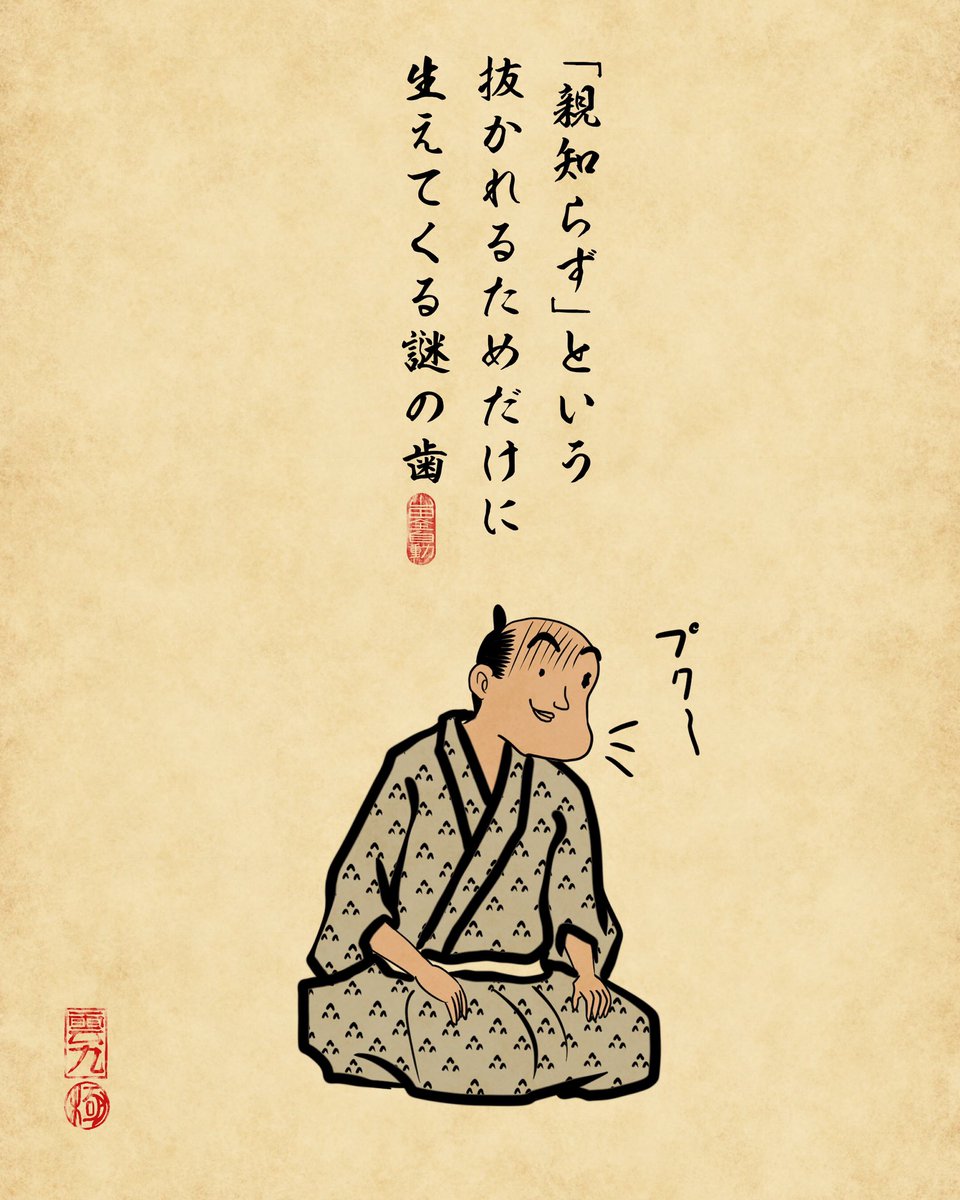 「親知らず」という
抜かれるためだけに
生えてくる謎の歯
プクー